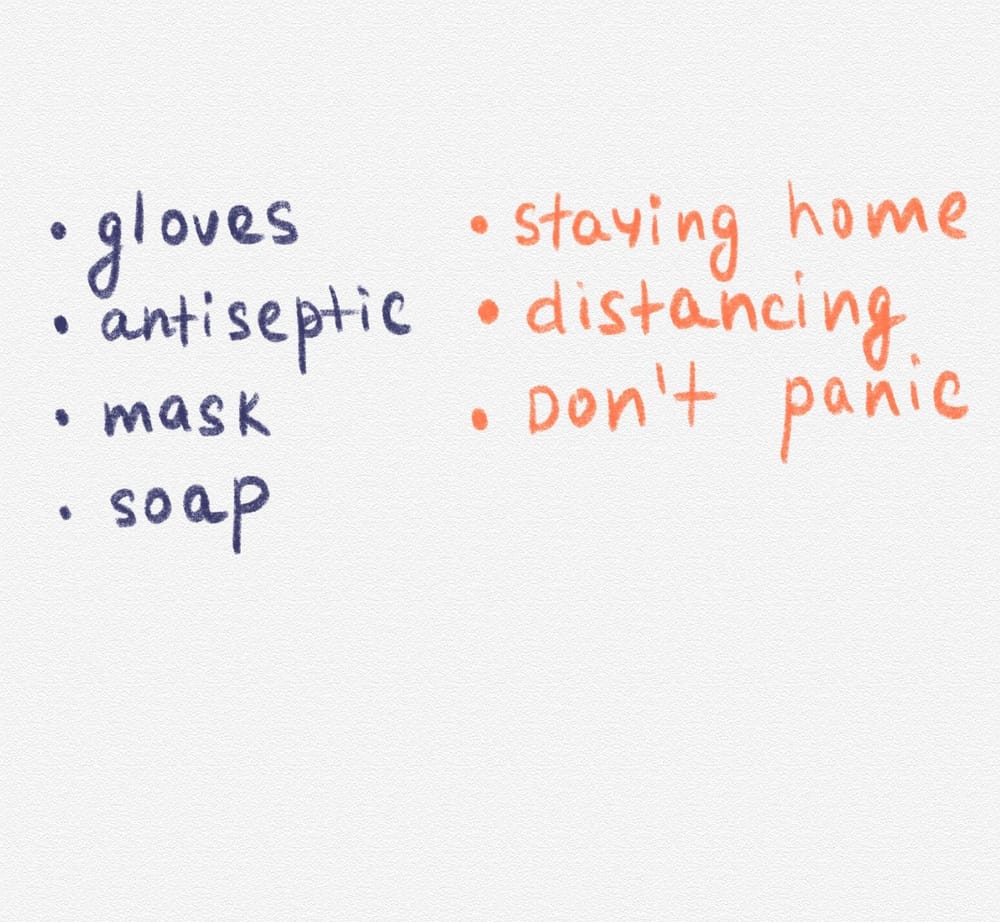 • gloves
• antiseptic
• mask
• soap
• staying home
• distancing
• Don't panic